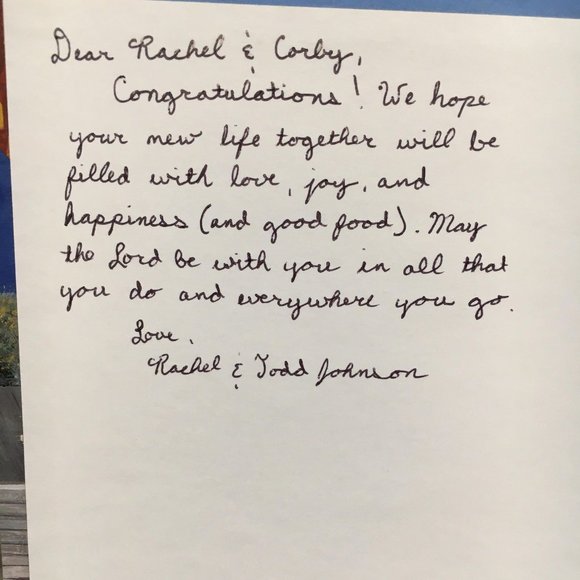 Dear Rachel & Corby,
Congratulations! We hope
your new life together will be
filled with love, joy, and
happiness (and good food). May
the Lord be with you in all that
you do and everywhere you go.
Love,
Rachel & Todd Johnson